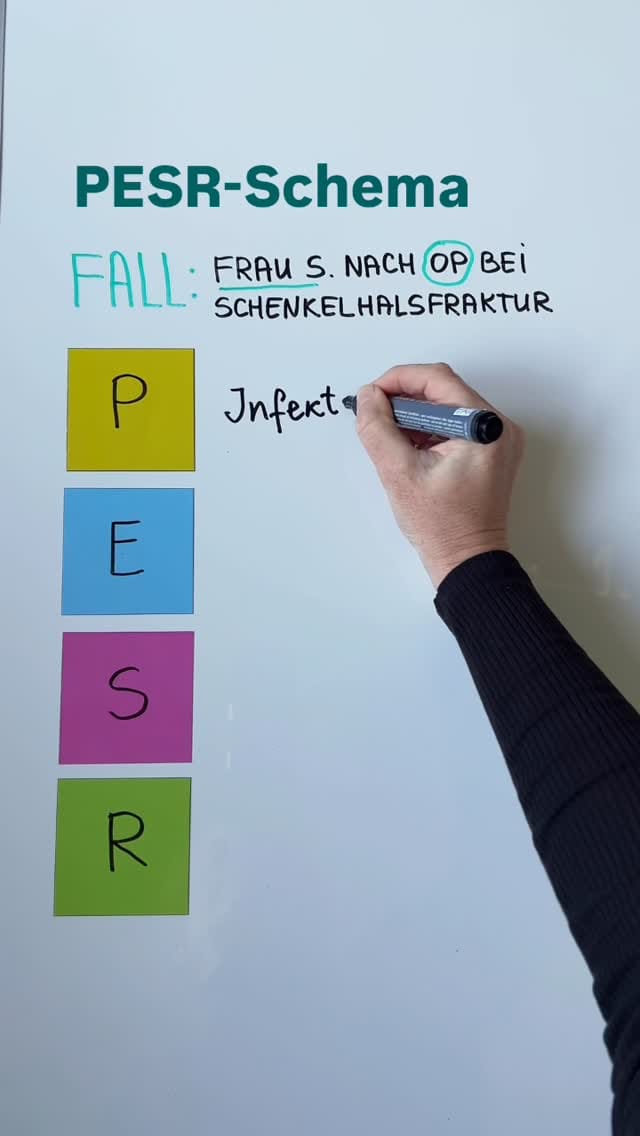 PESR-Schema
FALL: FRAU S. NACH OP BEI
SCHENKELHALSFRAKTUR
P Infekt
E
S
R